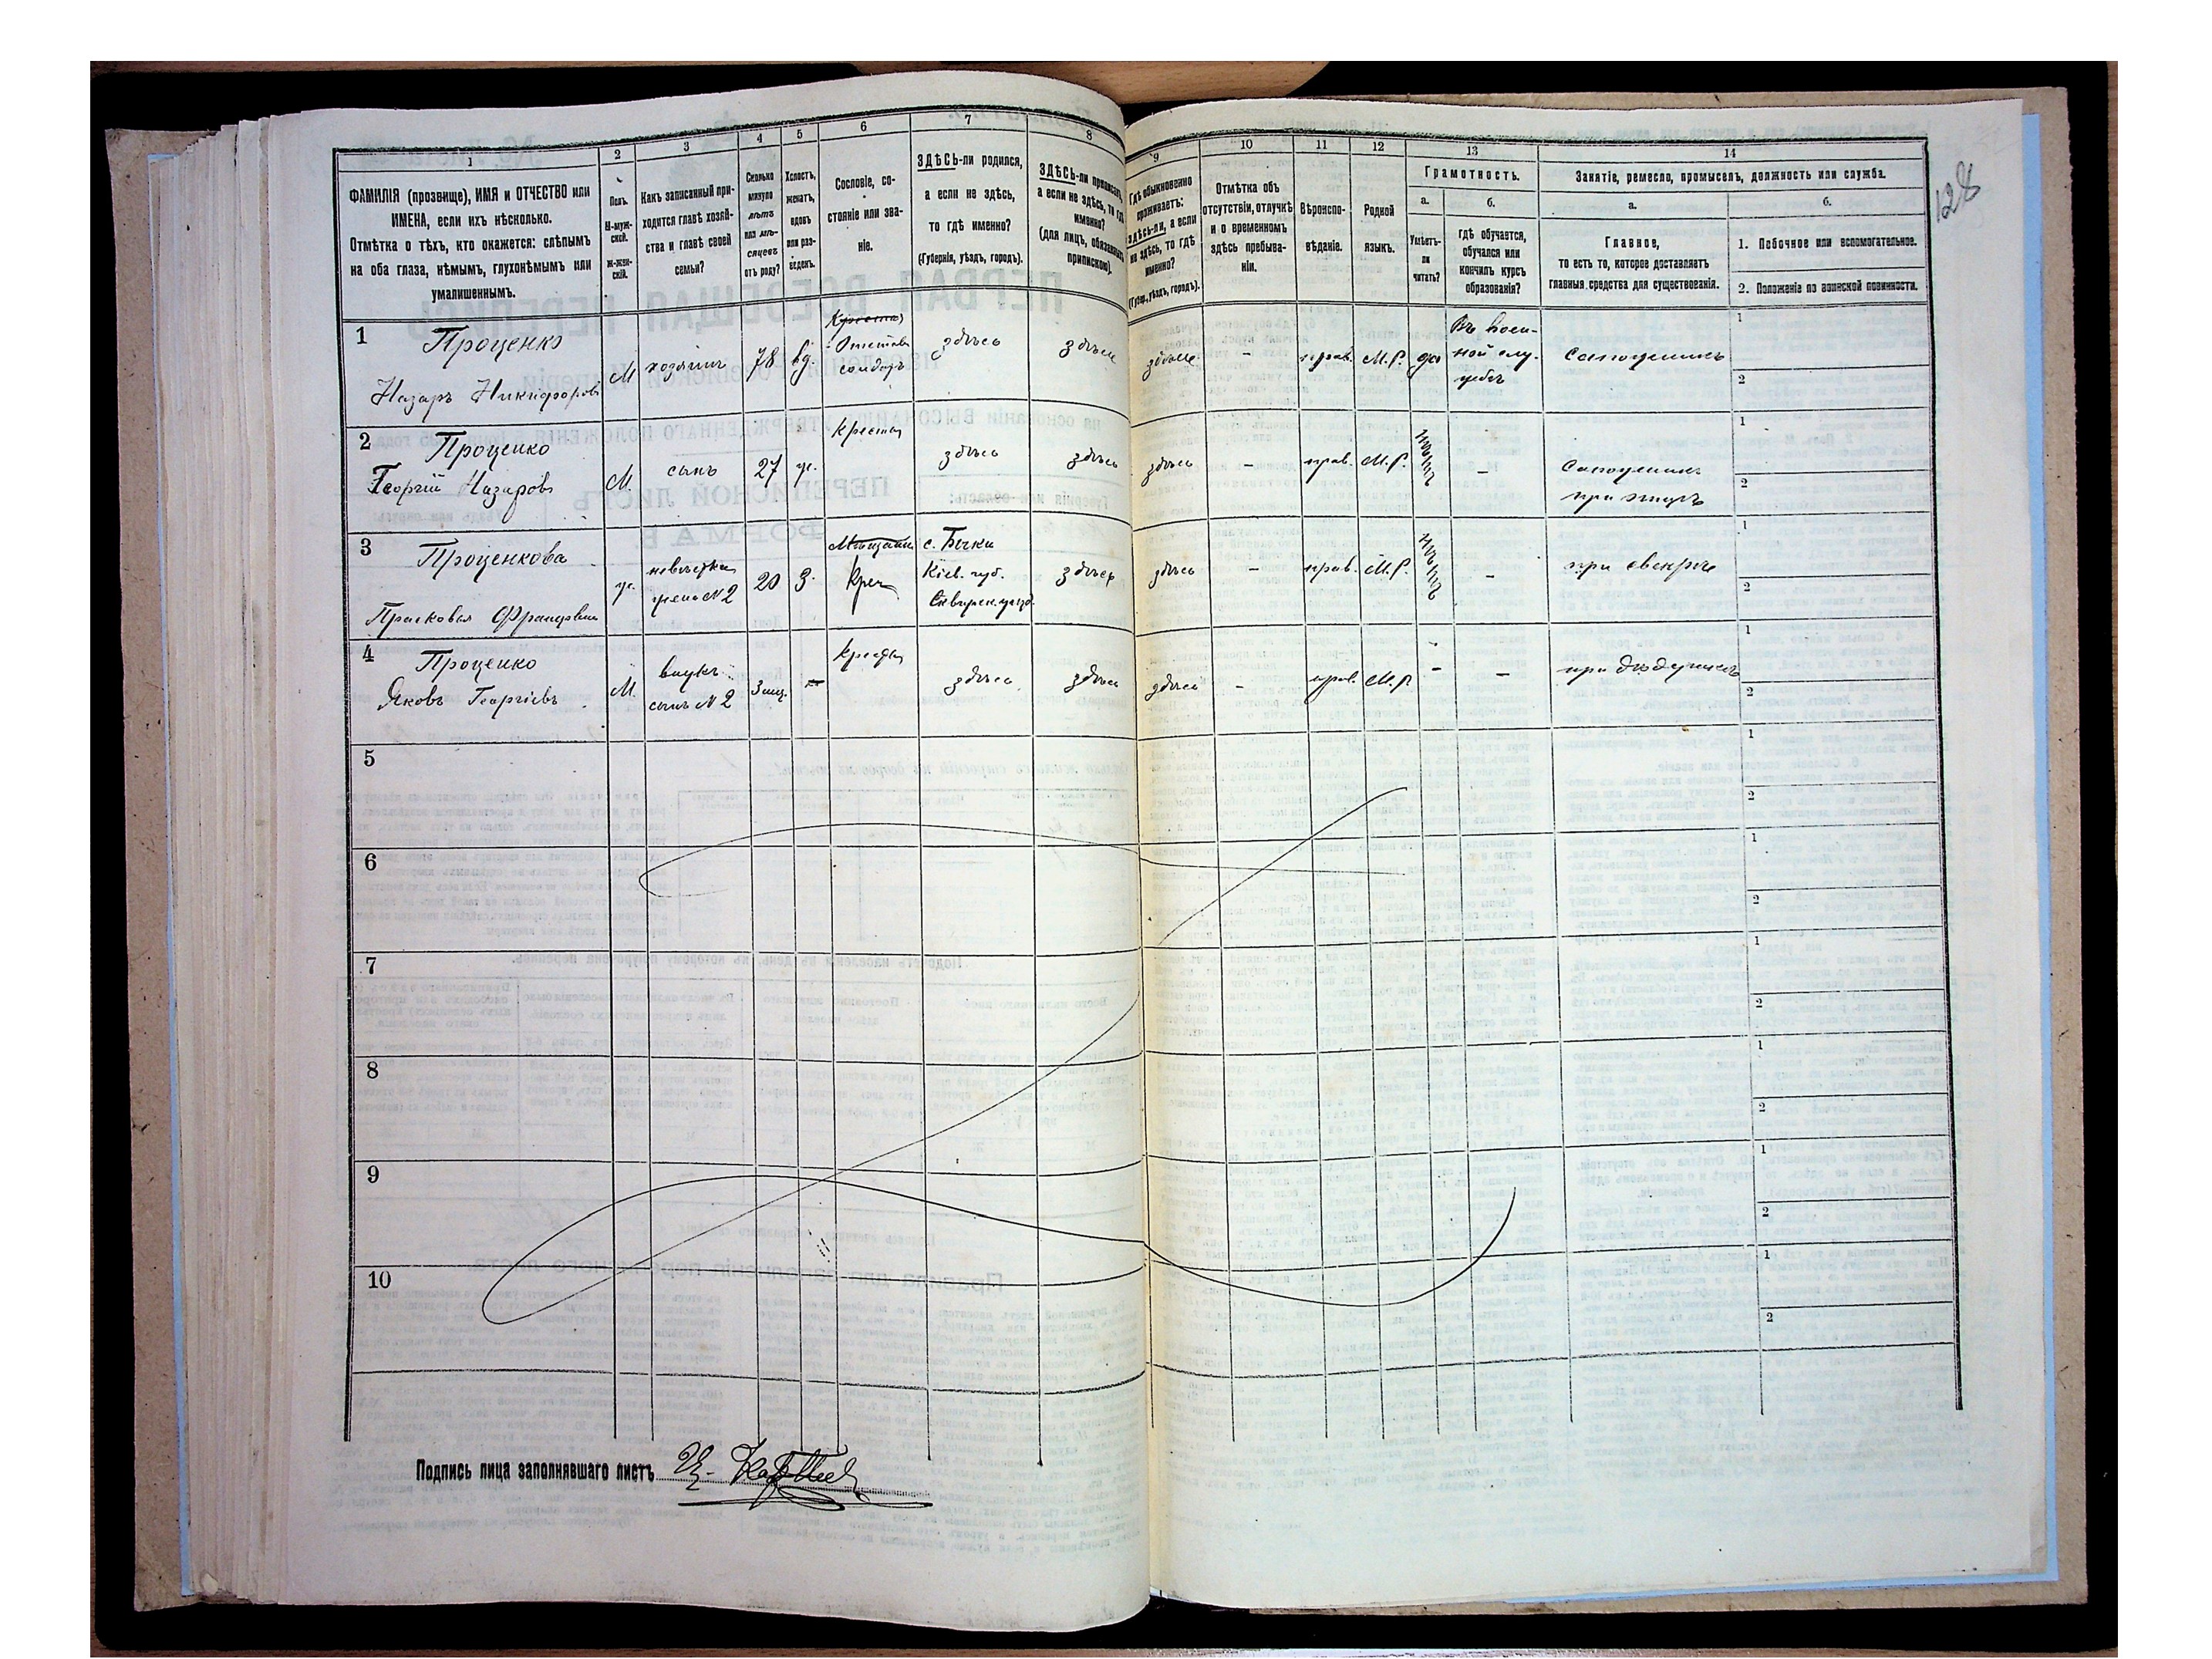 128
1
2
3
4
5
6
7
8
9
10
11
12
13
14
ФАМИЛІЯ (прозвище), ИМЯ и ОТЧЕСТВО или
ИМЕНА, если ихъ нѣсколько.
Отмѣтка о тѣхъ, кто окажется: слѣпымъ
на оба глаза, нѣмымъ, глухонѣмымъ или
умалишеннымъ.
Полъ.
М-муж-
ской.
ж-жен-
скій.
Какъ записанный при-
ходится главѣ хозяй-
ства и главѣ своей
семьи?
Сколько
минуло
лѣтъ
или мѣ-
сяцевъ
отъ роду?
Холостъ,
женатъ,
вдовъ
или раз-
веденъ.
Сословіе, со-
стояніе или зва-
ніе.
ЗДѢСЬ-ли родился,
а если не здѣсь,
то гдѣ именно?
(Губернія, уѣздъ, городъ).
ЗДѢСЬ-ли приписанъ,
а если не здѣсь, то гдѣ
именно?
(для лицъ, обязанныхъ
припискою).
Гдѣ обыкновенно
проживаетъ:
здѣсь-ли, а если
не здѣсь, то гдѣ
именно?
(Губерн., уѣздъ, городъ).
Отмѣтка объ
отсутствіи, отлучкѣ
и о временномъ
здѣсь пребыва-
ніи.
Вѣроиспо-
вѣданіе.
Родной
языкъ.
Грамотность.
а.
Умѣетъ-
ли
читать?
б.
гдѣ обучается,
обучался или
кончилъ курсъ
образованія?
Занятіе, ремесло, промыселъ, должность или служба.
а.
Главное,
то есть то, которое доставляетъ
главныя средства для существованія.
б.
1. Побочное или вспомогательное.
2. Положеніе по воинской повинности.
1
Проценко
Назаръ Никифоровъ
М
хозяинъ
78
вд.
Отставн
солдатъ
здѣсь
здѣсь
здѣсь
-
прав.
М.Р.
да
Въ воен-
ной слу-
жбѣ
сапожникъ
1
2
2
Проценко
Георгій Назаровъ
М
сынъ
27
ж.
Крестьян
здѣсь
здѣсь
здѣсь
-
прав.
М.Р.
нѣтъ
-
Сапожникъ
при отцѣ
1
2
3
Проценкова
Прасковья Францовна
ж.
невѣстка
жена №2
20
З.
Мѣщанка
Крес
с. Бычки
Кіев. губ.
Сквирск. уѣзд.
здѣсь
здѣсь
-
прав.
М.Р.
нѣтъ
-
при свекрѣ
1
2
4
Проценко
Яковъ Георгіевъ
М.
внукъ
сынъ №2
3 мц.
-
Крестьян
здѣсь
здѣсь
здѣсь
-
прав.
М.Р
-
-
при дѣдушкѣ
1
2
5
1
2
6
1
2
7
1
2
8
1
2
9
1
2
10
1
2
Подпись лица заполнявшаго листъ